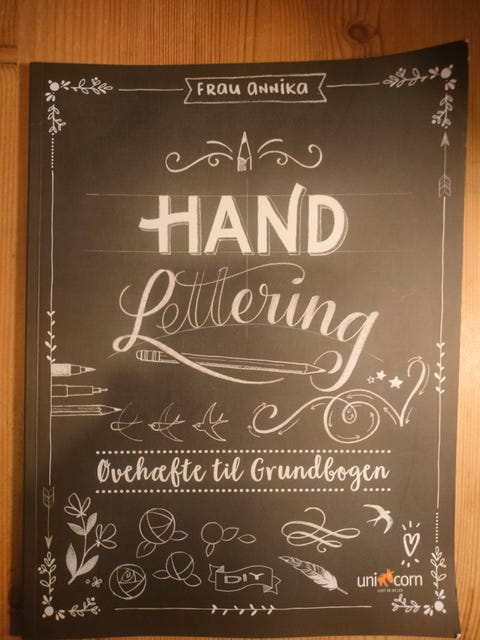 FRAU ANNIKA
HAND
Lettering
Øvehæfte til Grundbogen
DIY
unicorn